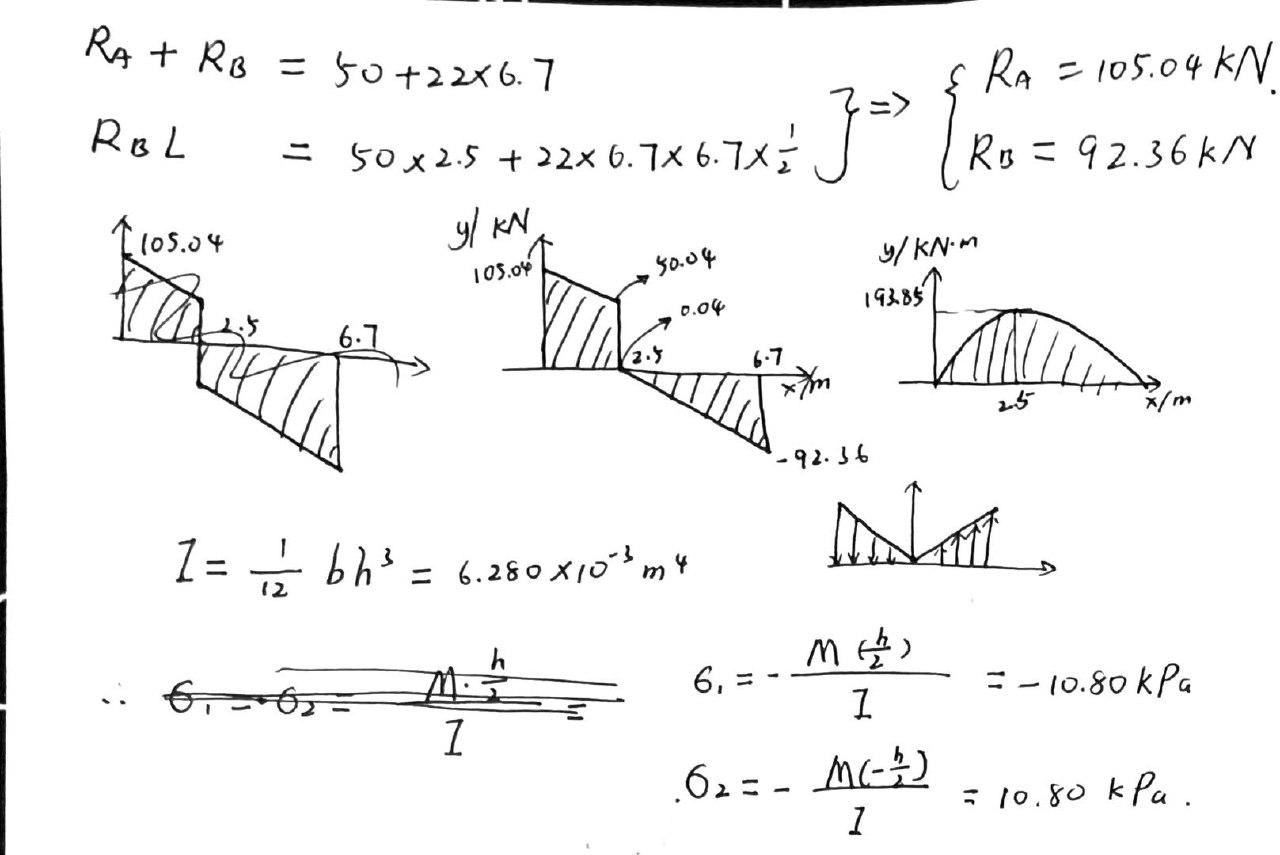 R_A + R_B = 50+22×6.7
R_B L = 50×2.5 + 22×6.7×6.7×1/2
} => { R_A = 105.04 kN.
R_B = 92.36 kN
105.04
2.5
6.7
y/ kN
105.04
50.04
0.04
2.5
6.7
x/m
-92.36
y/ KN·m
193.85
2.5
x/m
I = 1/12 bh³ = 6.280×10⁻³ m⁴
∴ σ₁ = -σ₂ = M·h/2 / I =
σ₁ = - M(h/2) / I = -10.80 kPa
σ₂ = - M(-h/2) / I = 10.80 kPa.